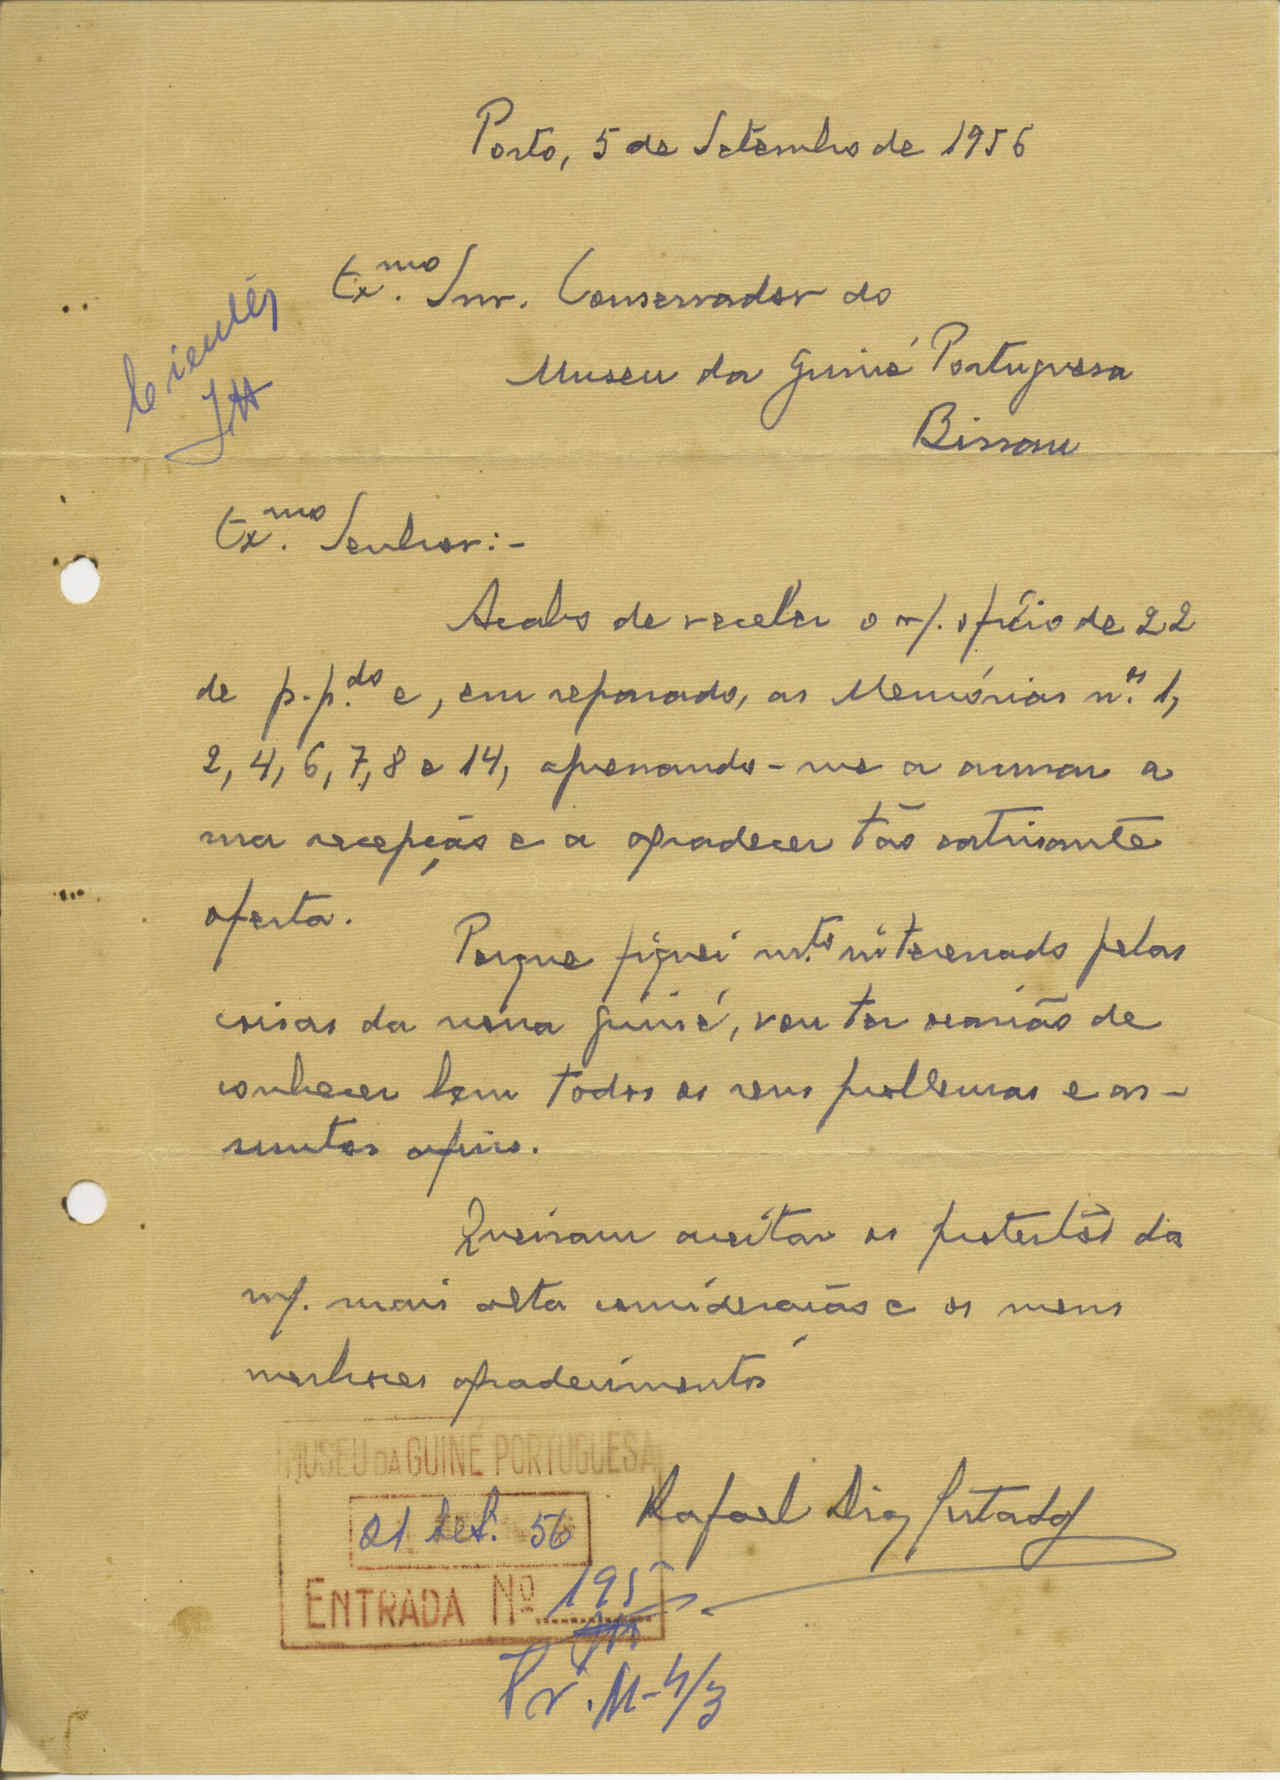 Porto, 5 de Setembro de 1956
Ex.mo Snr. Conservador do
Museu da Guiné Portuguesa
Bissau
Ciente
Ex.mo Senhor:-
Acabo de receber o v/. ofício de 22
de p.p.do e, em separado, as Memórias n.os 1,
2, 4, 6, 7, 8 e 14, apressando-me a acusar a
sua recepção e a agradecer tão
oferta.
Porque fiquei m.to interessado pelas
coisas da nossa Guiné, vou ter ocasião de
conhecer bem todos os seus problemas e as-
suntos afins.
Queiram aceitar os protestos da
m/. mais alta consideração e os meus
melhores agradecimentos
MUSEU DA GUINÉ PORTUGUESA
21 Set. 56
Rafael Dias Furtado
ENTRADA Nº 195
Pr. M-4/3